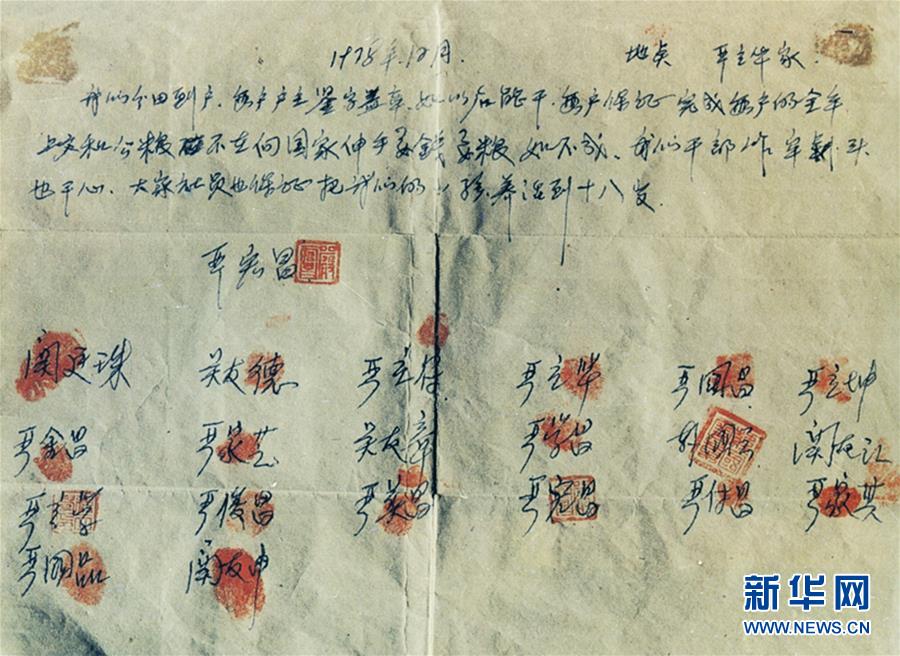 1978年12月. 地点 严立华家.
我们分田到户,每户户主签字盖章,如以后能干,每户保证完成每户的全年
上交和公粮不在向国家伸手要钱要粮如不成,我们干部作牢剎头
也干心,大家社员也保证把我们的小孩养活到十八岁.
严宏昌
关廷珠 关友德 严立符 严立华 严国昌 严立坤
严金昌 严家芝 关友章 严学昌 韩国云 关友江
严立学 严俊昌 严美昌 严宏昌 严付昌 严家其
严国品 关友申
新华网
WWW.NEWS.CN